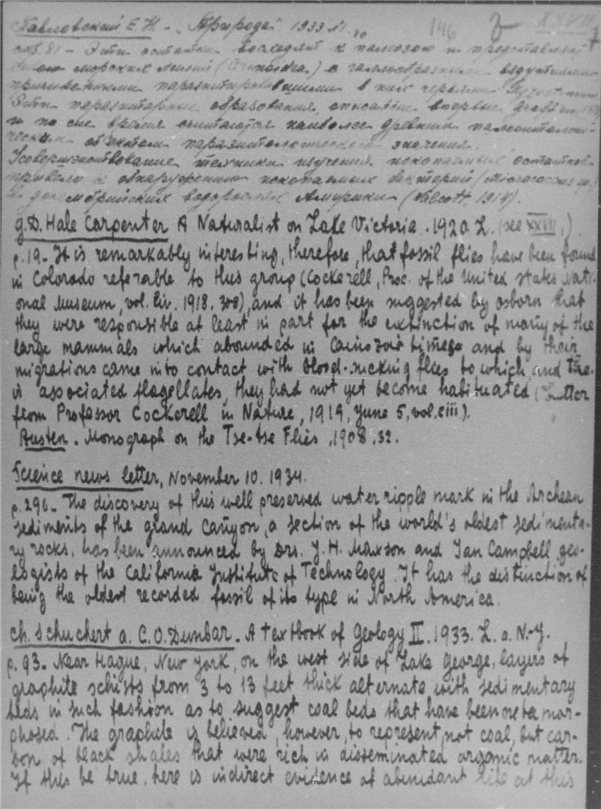 Павловский Е.Н. - "Природа" 1933 №
146
XXVIII
стр. 81 - Эти остатки восходят к палеозою и представляют
морских лилий (Crinoidea) с галлообразными вздутиями
причиненными паразитировавшими в них червями
Эти паразитарные образования, описанные впервые
и по сие время считаются наиболее древним палеонтологи-
ческим объектом паразитологического значения.
Усовершенствование техники изучения ископаемых остатков
привело к обнаружению ископаемых бактерий (Micrococcus
в докембрийских водорослях Америки (Walcott, 1914).
G.D. Hale Carpenter A Naturalist on Lake Victoria. 1920. L. (see XXVII,)
p. 19 - It is remarkably interesting, therefore, that fossil flies have been found
in Colorado referable to this group (Cockerell, Proc. of the United States Nati-
onal Museum, vol. liv. 1918, 308), and it has been suggested by Osborn that
they were responsible at least in part for the extinction of many of the
large mammals which abounded in Cainozoic times and by their
migrations came into contact with blood-sucking flies to which and the-
ir associated flagellates, they had not yet become habituated (Letter
from Professor Cockerell in Nature, 1919, June 5, vol. ciii).
Austen. Monograph on the Tse-tse Flies, 1908, 32.
Science news letter, November 10. 1934.
p. 296 - The discovery of this well preserved water ripple mark in the Archean
sediments of the Grand Canyon, a section of the world's oldest sedimenta-
ry rocks, has been announced by Drs. J. H. Maxson and Ian Campbell, geo-
logists of the California Institute of Technology. It has the distinction of
being the oldest recorded fossil of its type in North America.
Ch. Schuchert a. C.O. Dunbar. A Textbook of Geology II. 1933. L. a. N-Y.
p. 93 - Near Hague, New York, on the west side of Lake George, layers of
graphite schists from 3 to 13 feet thick alternate with sedimentary
beds in such fashion as to suggest coal beds that have been metamor-
phosed. The graphite is believed, however, to represent not coal, but car-
bon of black shales that were rich in disseminated organic matter.
If this be true, here is indirect evidence of abundant life at this